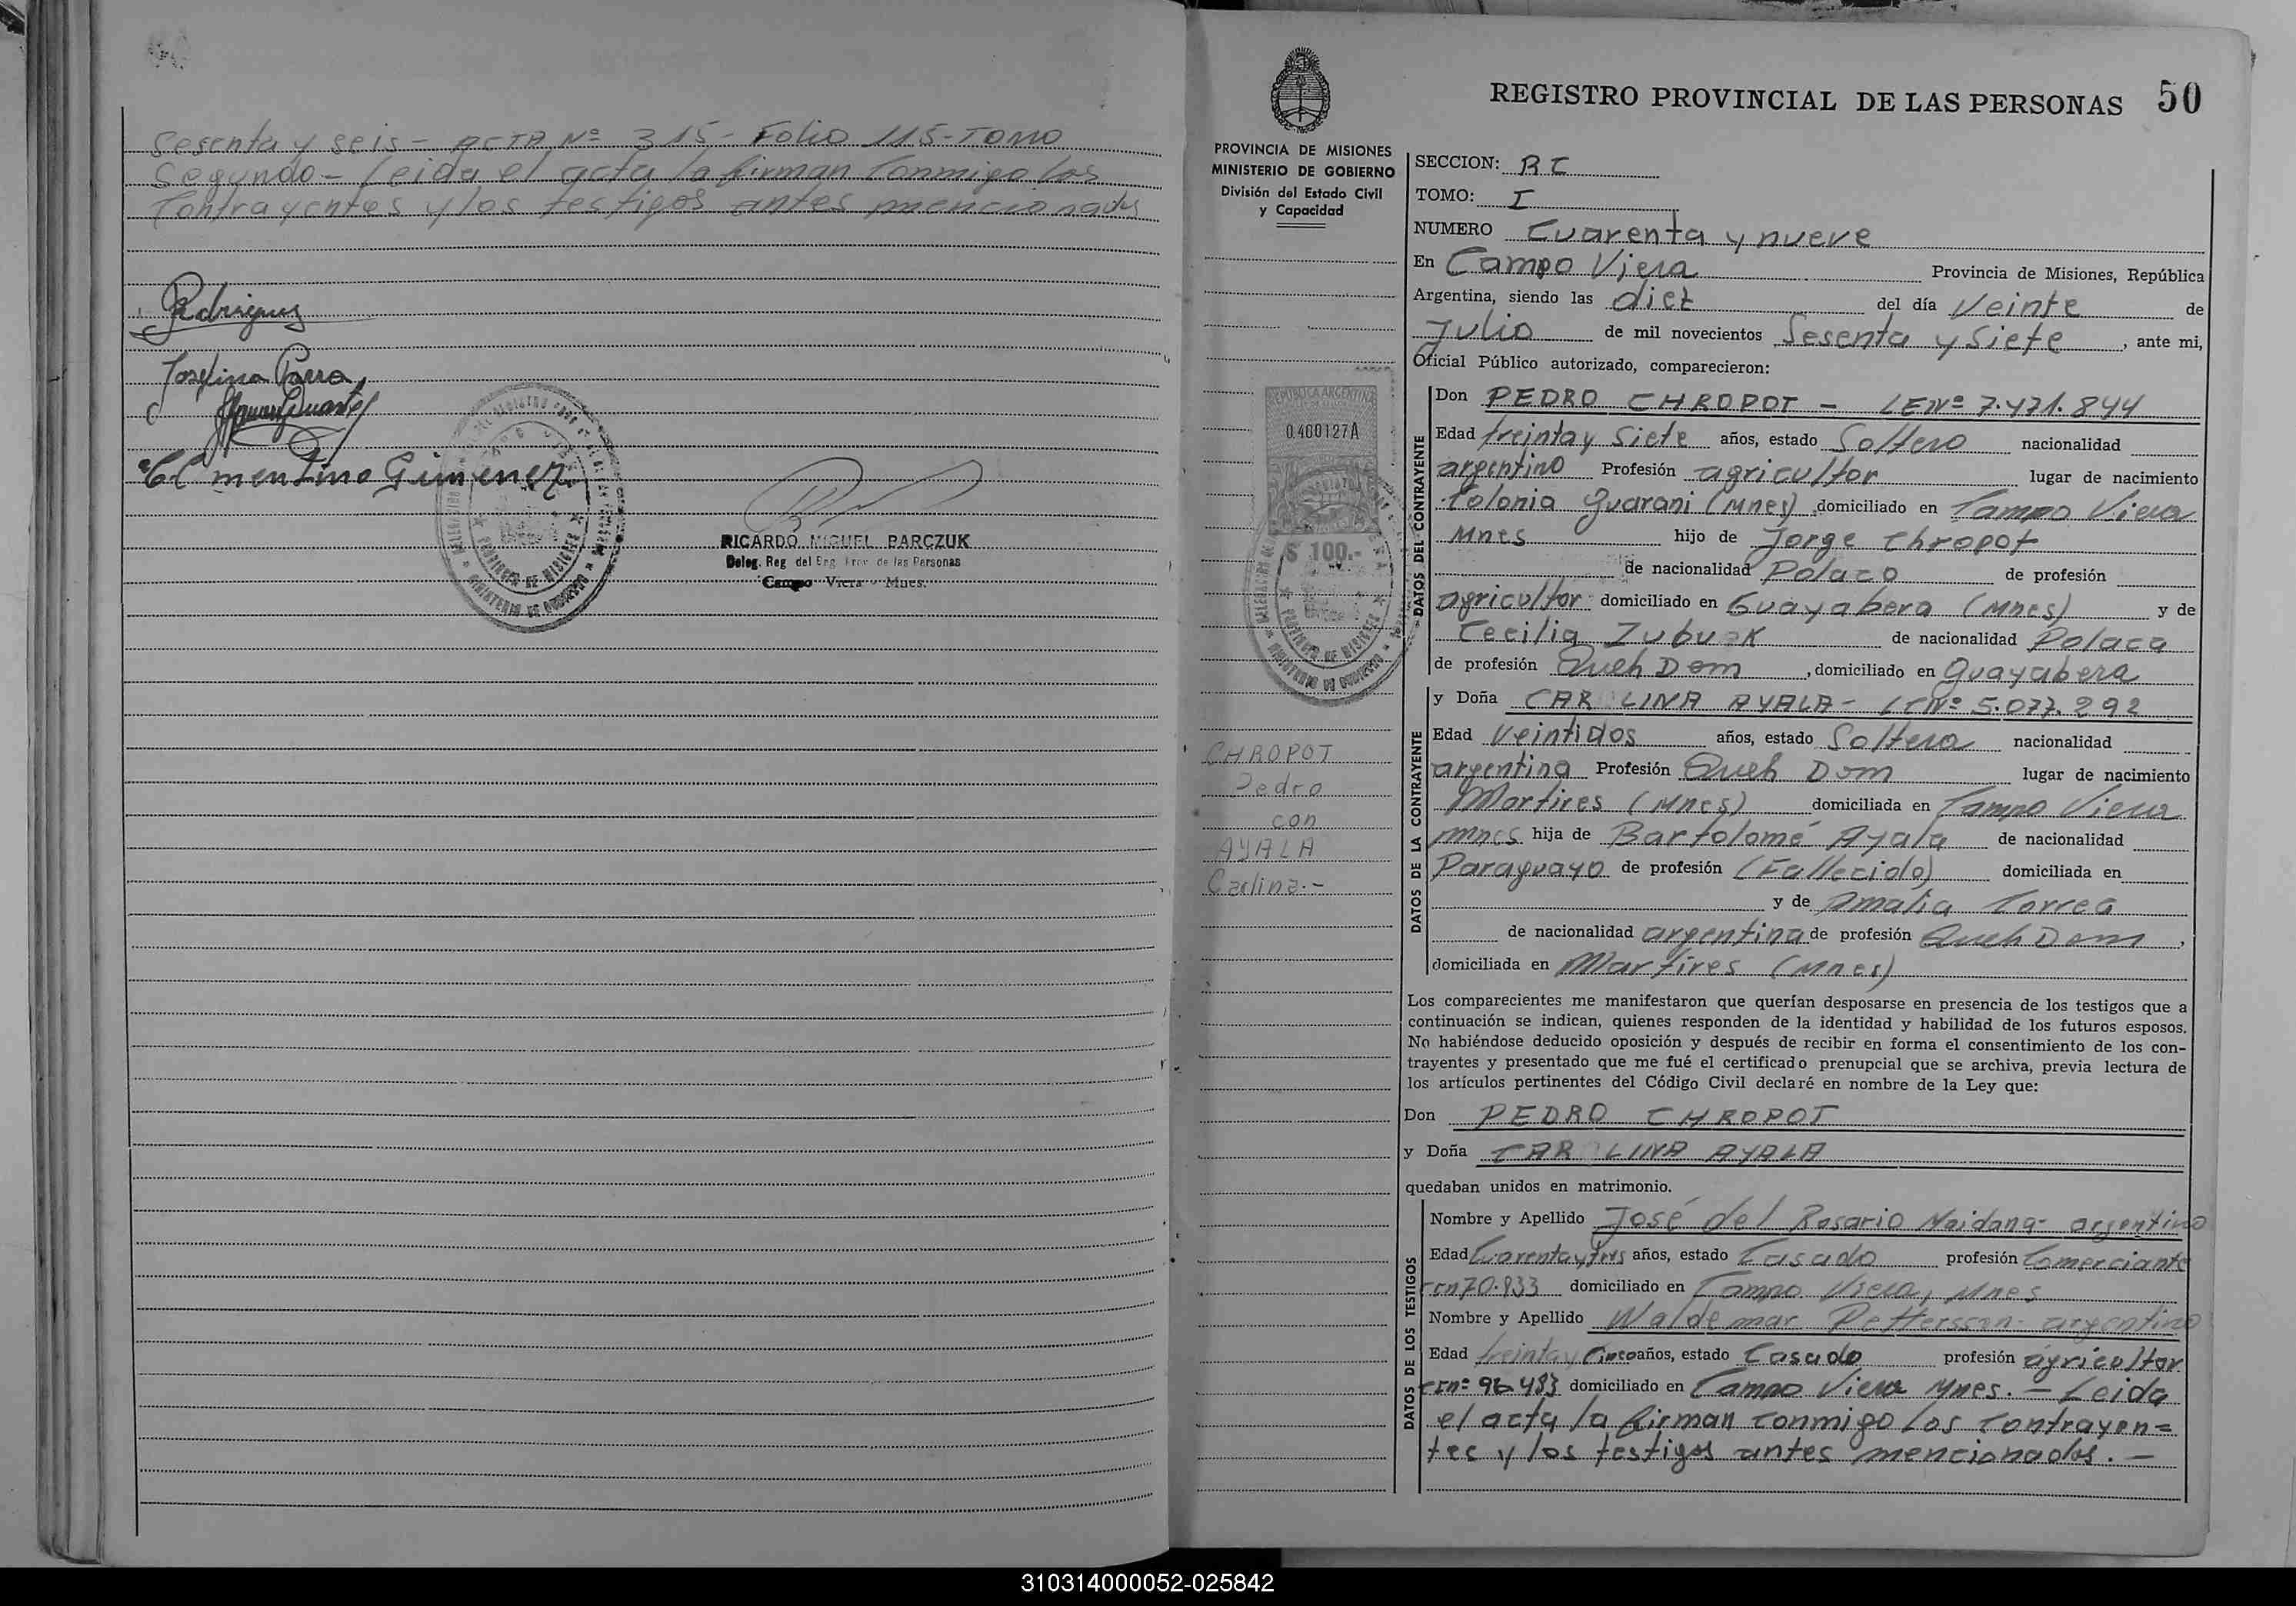 Sesenta y seis - ACTA Nº 315 - Folio 115 - TOMO
Segundo - Leida el acta la firman conmigo los
contrayentes y los testigos antes mencionados
Rodriguez
Josefina Parra
Duarte
Clementino Gimenez
RICARDO MIGUEL PARCZUK
Deleg. Reg del Reg Prov de las Personas
Campo Viera - Mnes.
REGISTRO PROVINCIAL DE LAS PERSONAS 50
PROVINCIA DE MISIONES
MINISTERIO DE GOBIERNO
División del Estado Civil
y Capacidad
REPUBLICA ARGENTINA
0.400127A
$ 100.-
PROVINCIA DE MISIONES
MINISTERIO DE GOBIERNO
CHROPOT
Pedro
con
AYALA
Carlina.-
SECCION: RC
TOMO: I
NUMERO Cuarenta y nueve
En Campo Viera Provincia de Misiones, República
Argentina, siendo las diez del día Veinte de
Julio de mil novecientos Sesenta y Siete, ante mi,
Oficial Público autorizado, comparecieron:
DATOS DEL CONTRAYENTE
Don PEDRO CHROPOT - LE Nº 7.471.844
Edad treinta y Siete años, estado Soltero nacionalidad
argentino Profesión agricultor lugar de nacimiento
Colonia Guarani (Mnes) domiciliado en Campo Viera
Mnes hijo de Jorge Chropot
de nacionalidad Polaco de profesión
agricultor domiciliado en Guayabera (Mnes) y de
Cecilia Zubuk de nacionalidad Polaca
de profesión Queh Dom, domiciliado en Guayabera
DATOS DE LA CONTRAYENTE
y Doña CAR LINA AYALA - LC Nº 5.077.292
Edad Veintidos años, estado Soltera nacionalidad
argentina Profesión Queh Dom lugar de nacimiento
Martires (Mnes) domiciliada en Campo Viera
mnes hija de Bartolomé Ayala de nacionalidad
Paraguayo de profesión (Fallecido) domiciliada en
y de Amalia Correa
de nacionalidad argentina de profesión Queh Dom,
domiciliada en Martires (Mnes)
Los comparecientes me manifestaron que querían desposarse en presencia de los testigos que a
continuación se indican, quienes responden de la identidad y habilidad de los futuros esposos.
No habiéndose deducido oposición y después de recibir en forma el consentimiento de los con-
trayentes y presentado que me fué el certificado prenupcial que se archiva, previa lectura de
los artículos pertinentes del Código Civil declaré en nombre de la Ley que:
Don PEDRO CHROPOT
y Doña CAR LINA AYALA
quedaban unidos en matrimonio.
DATOS DE LOS TESTIGOS
Nombre y Apellido José del Rosario Maidana - argentino
Edad Cuarenta y tres años, estado Casado profesión Comerciante
domiciliado en Campo Viera, Mnes
Nombre y Apellido Waldemar Pettersson - argentino
Edad treinta y Cinco años, estado Casado profesión agricultor
domiciliado en Campo Viera Mnes. - Leida
el acta la firman conmigo los contrayen=
tes y los testigos antes mencionados. -
310314000052-025842